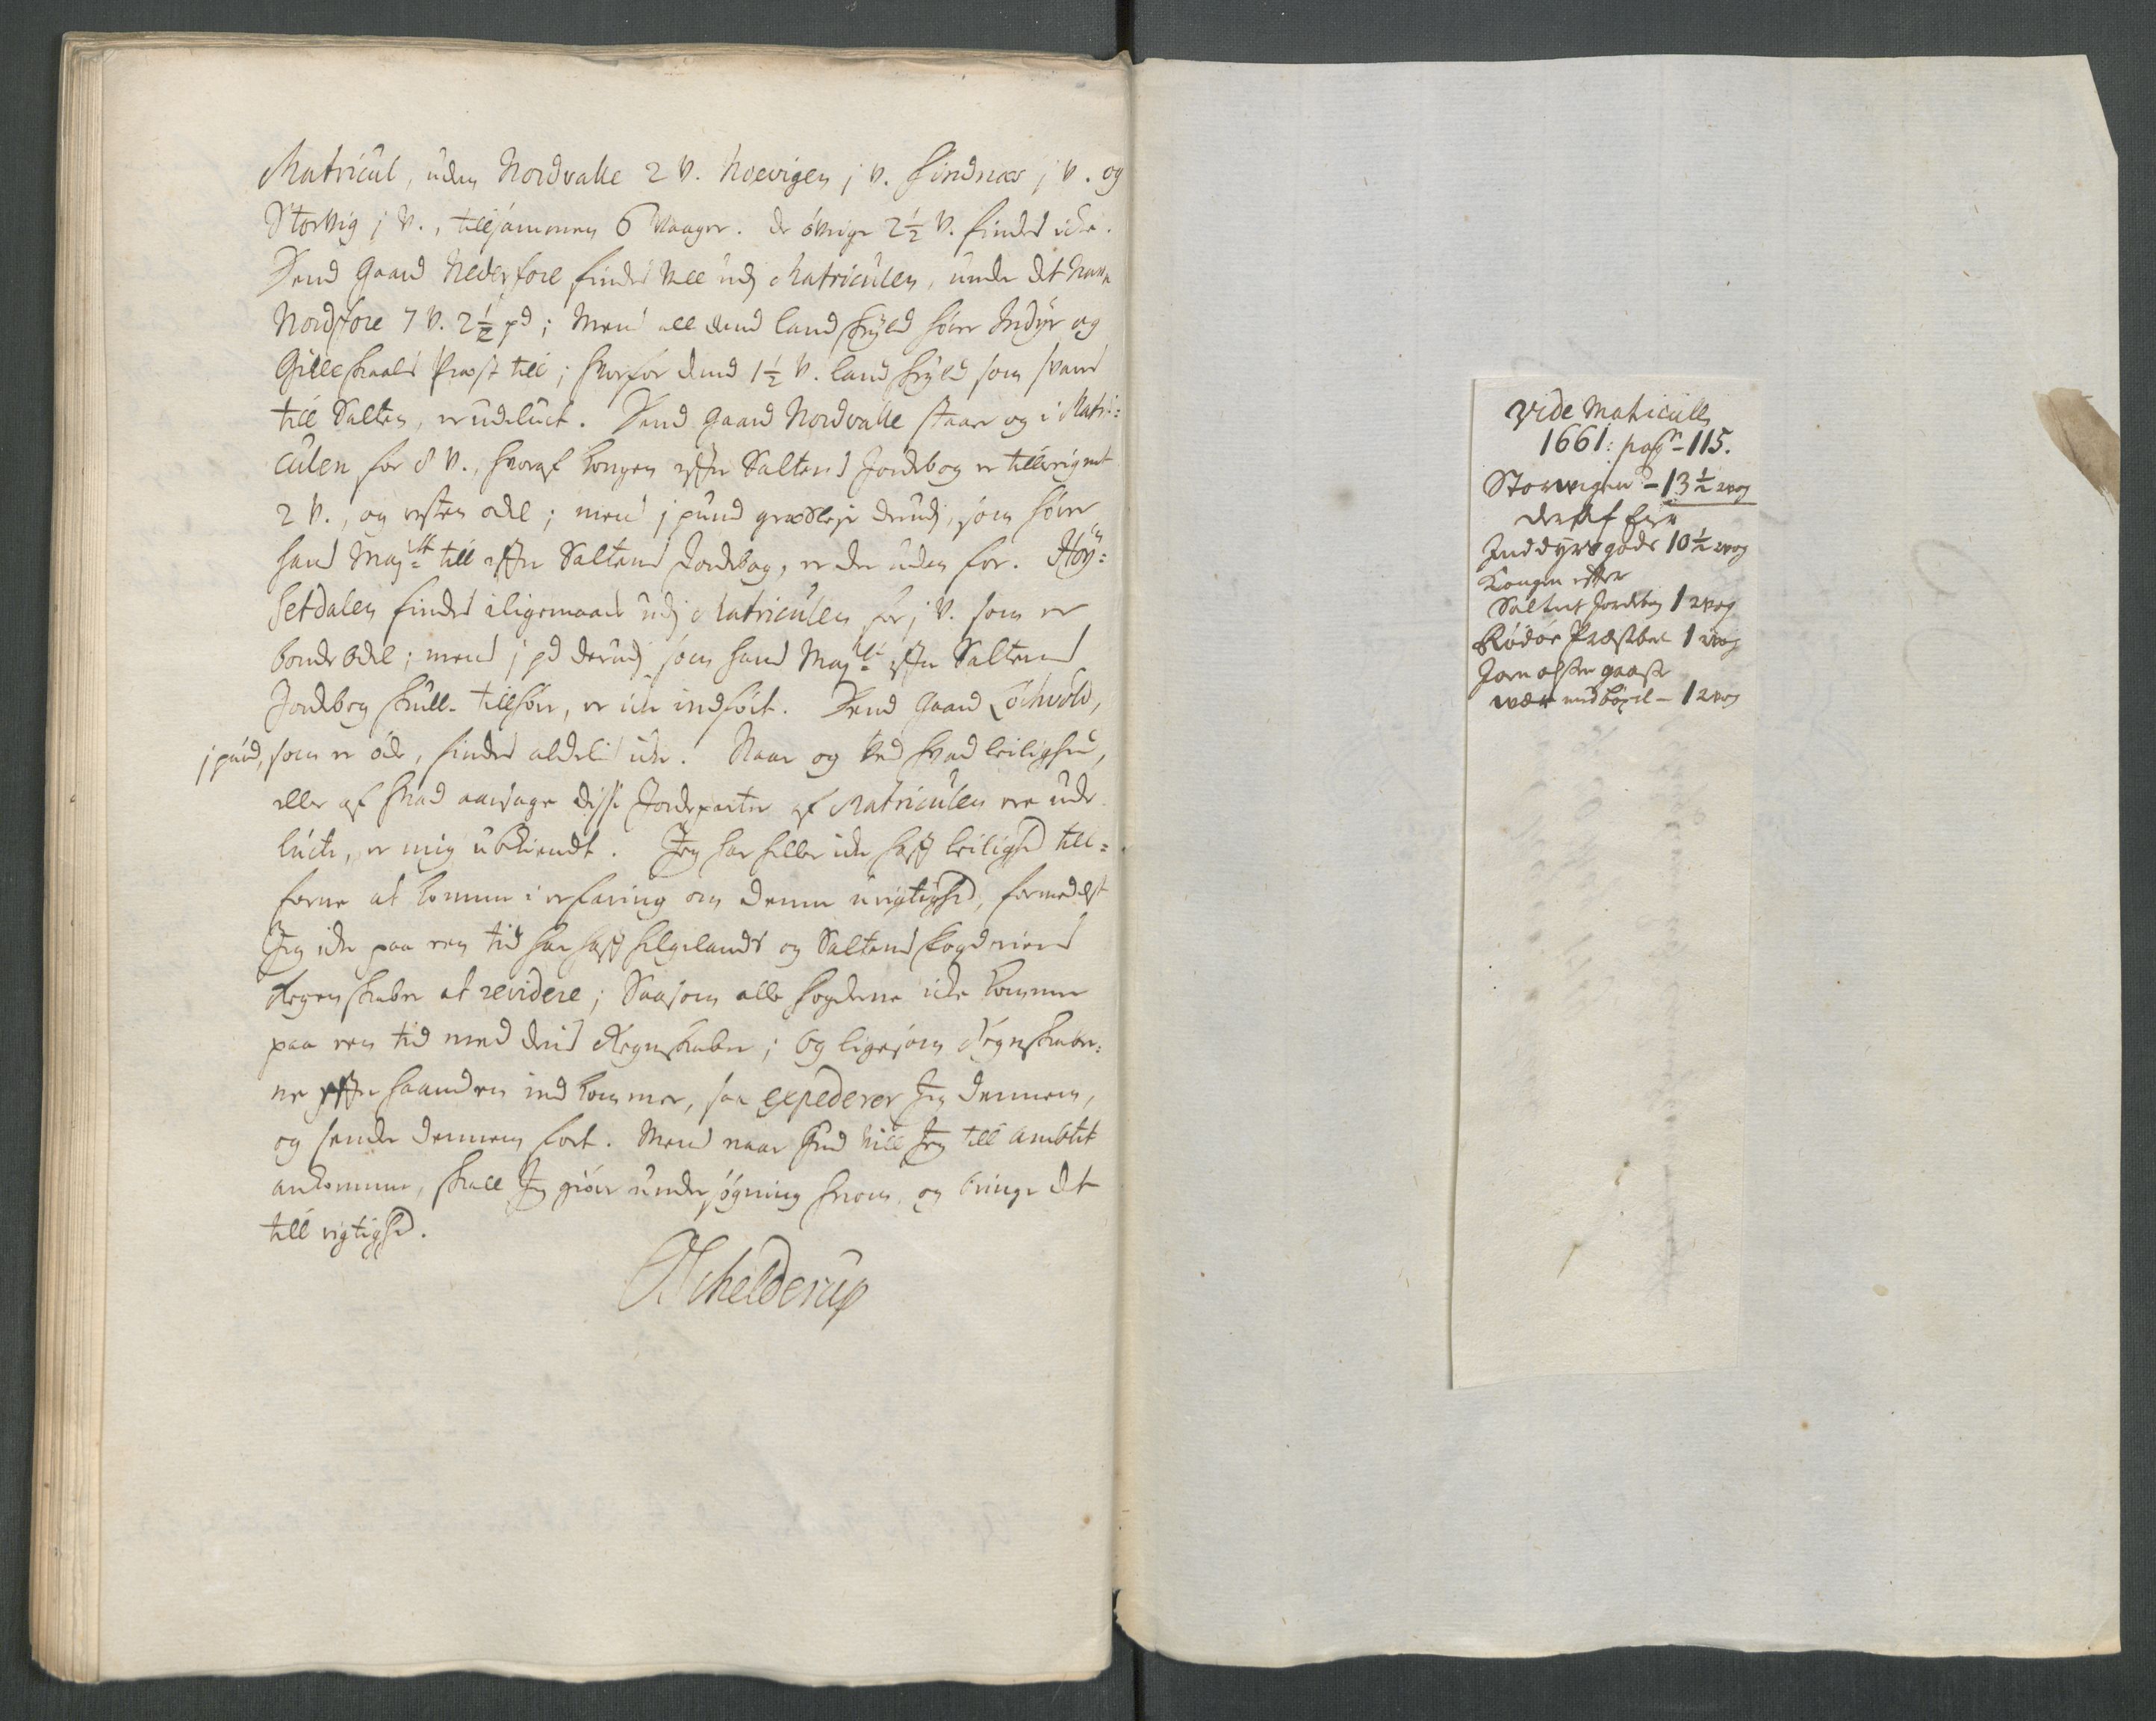 Matricul, uden Nordvalle 2 V. Noevigen j V. Sindnæs j V. og
Storvig j V., tillsammen 6 Vaager. De øvrige 2½ V. findes icke.
Dend Gaard Nederfore findes Vel udj Matriculen, under det Nafn
Nordfore 7 V. 2½ pd; Mend all dend landskyld hører Indyr og
Gilleskaals Præst till; hvorfor dend 1½ V. landskyld som svares
till Salten, er udeluct. Dend Gaard Nordvalle staar og i Matri=
culen for 8 V., hvoraf kongen efter Saltens Jordebog er tillegnet
2 V., og resten odel; mend j pund græsleje derudj, som hører
hans Maj:tt till efter Saltens Jordebog, er der uden for. Høy=
setdalen findes iligemaade udj Matriculen for j V. som er
bonde Odel; mend j pd derudj som hans Maj:tt efter Saltens
Jordebog skulle tillhøre, er icke indført. Dend Gaard Lochvold,
j pund, som er øde, findes aldelis icke. Naar og Ved hvad leilighed,
eller af hvad aarsage disse Jordeparter af Matriculen ere ude
luckte, er mig ubekiendt. Jeg har heller icke haft leilighed till=
forne at komme i erfaring om denne urigtighed, formedelst
Jeg icke paa een tid har haft Helgelands og Saltens fogderiers
Regenskaber at revidere; Saasom alle fogderne icke kommer
paa een tid med deris Regnskaber; Og ligesom Regnskaber=
ne efter haanden indkommer, saa expederer Jeg dennem,
og sender dennem fort. Mend naar Gud Vill Jeg till Ambtet
ankommer, skall Jeg giøre undersøgning herom, og bringe det
till rigtighed.
Schelderup
Vide Maticull
1661: pag - 115.
Storwigen - 13½ wog
deraf Eier
Inddyrs gods 10½ wog
Kongen efter
Saltens Jordebog 1 wog
Rødøe Præstbol 1 wog
Jorn
med bøxel - 1 wog